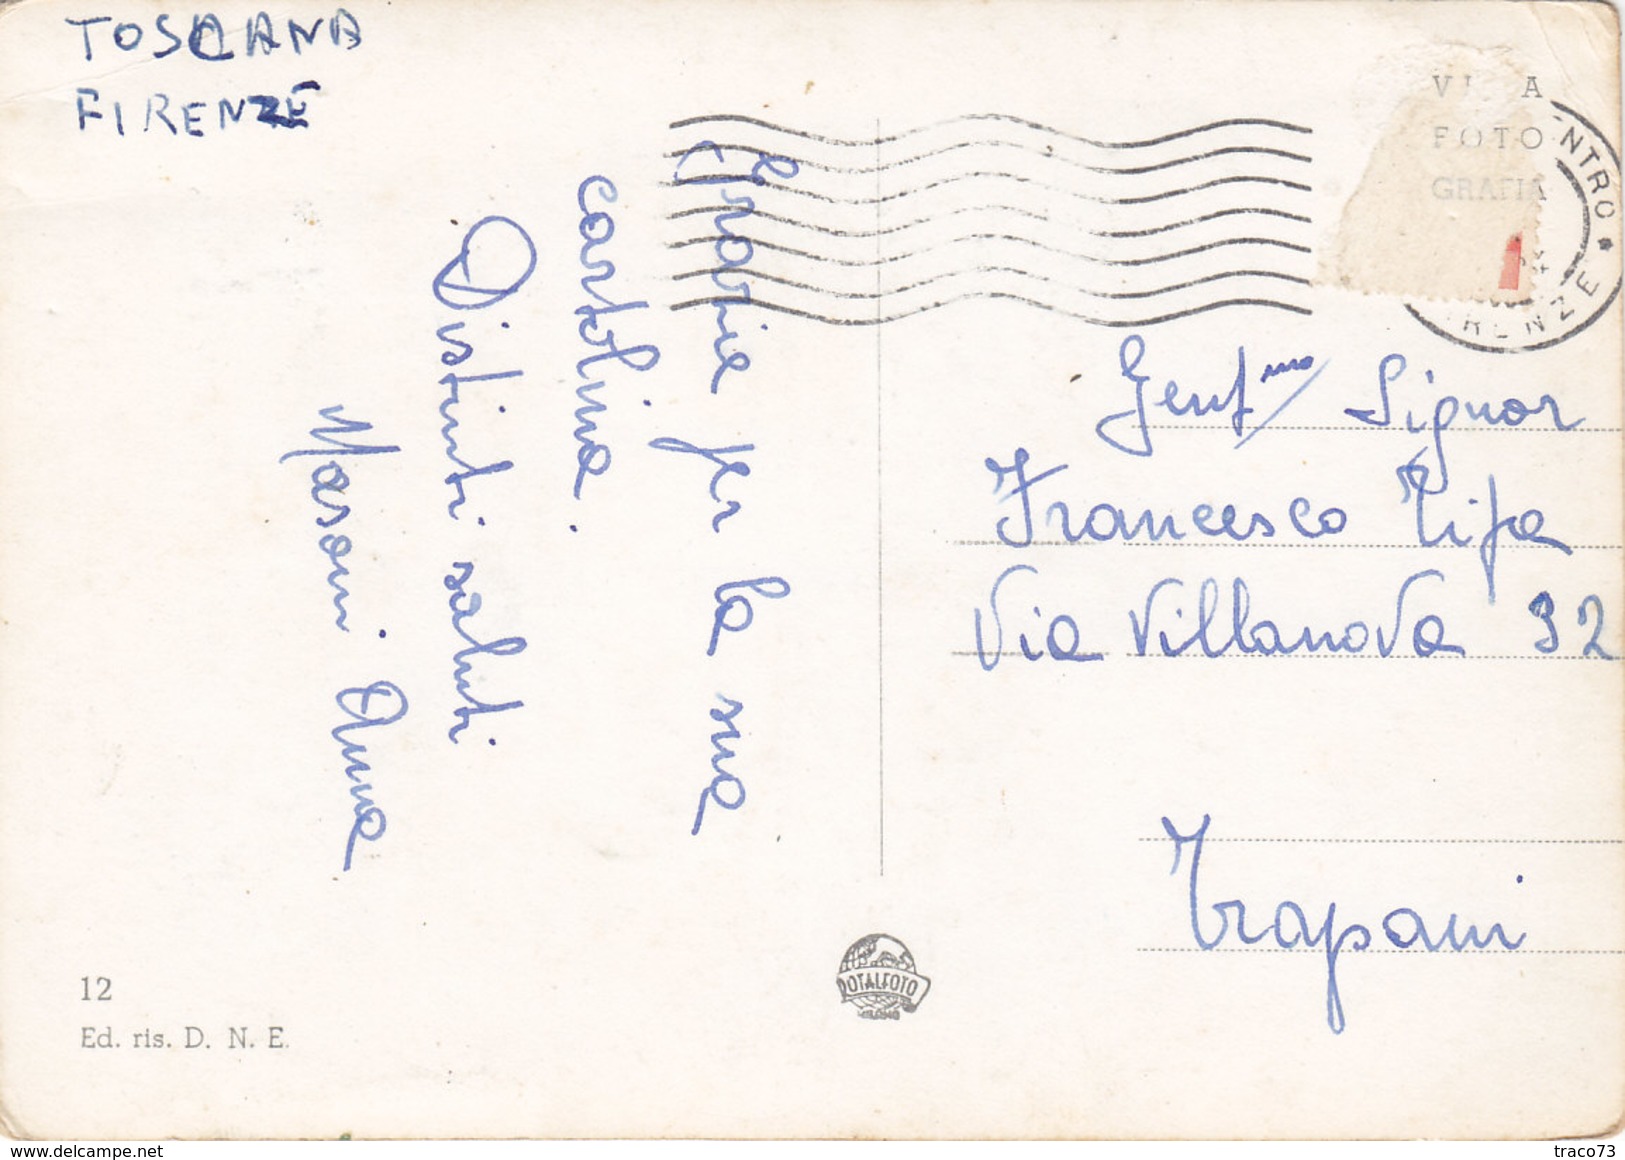 TOSCANA
FIRENZE
Grazie per la sua
cartolina.
Distinti saluti
Masoni Anna
12
Ed. ris. D. N. E.
ROTALFOTO
MILANO
V A
FOTO
GRAFIA
NTRO *
RENZE
Gent.mo Signor
Francesco Tifa
Via Villanova 32
Trapani
www.delcampe.net
traco73